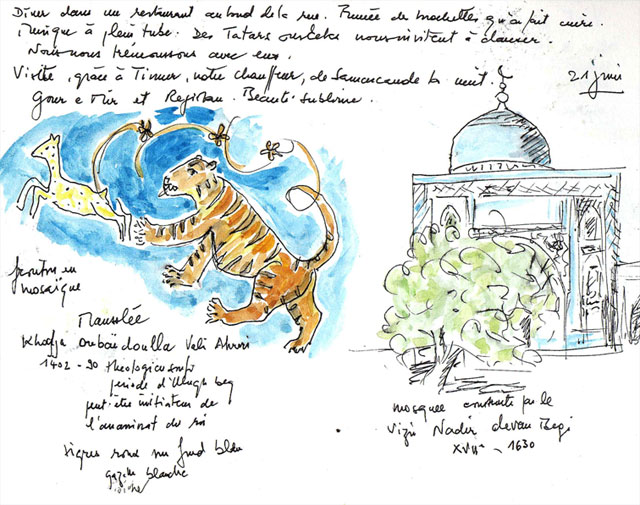 Dîner dans un restaurant au bord de la rue. Fumée de brochettes qu'on fait cuire.
Musique à plein tube. Des Tatars ouzbeks nous invitent à danser.
Nous nous trémoussons avec eux.
Visite, grâce à Timur, notre chauffeur, de Samarcande la nuit.
Gour e Mir et Registan. Beauté sublime.
21 juin
fronton en
mosaïque
Mausolée
Khodja oubaïdoulla Vali
1402 - 90 théologien
période d'Ulugh beg
peut-être initiateur de
l'assassinat du roi
tigre rond sur fond bleu
gazelle blanche
mosquée construite par le
Vizir Nadir devan Begi
XVII - 1630